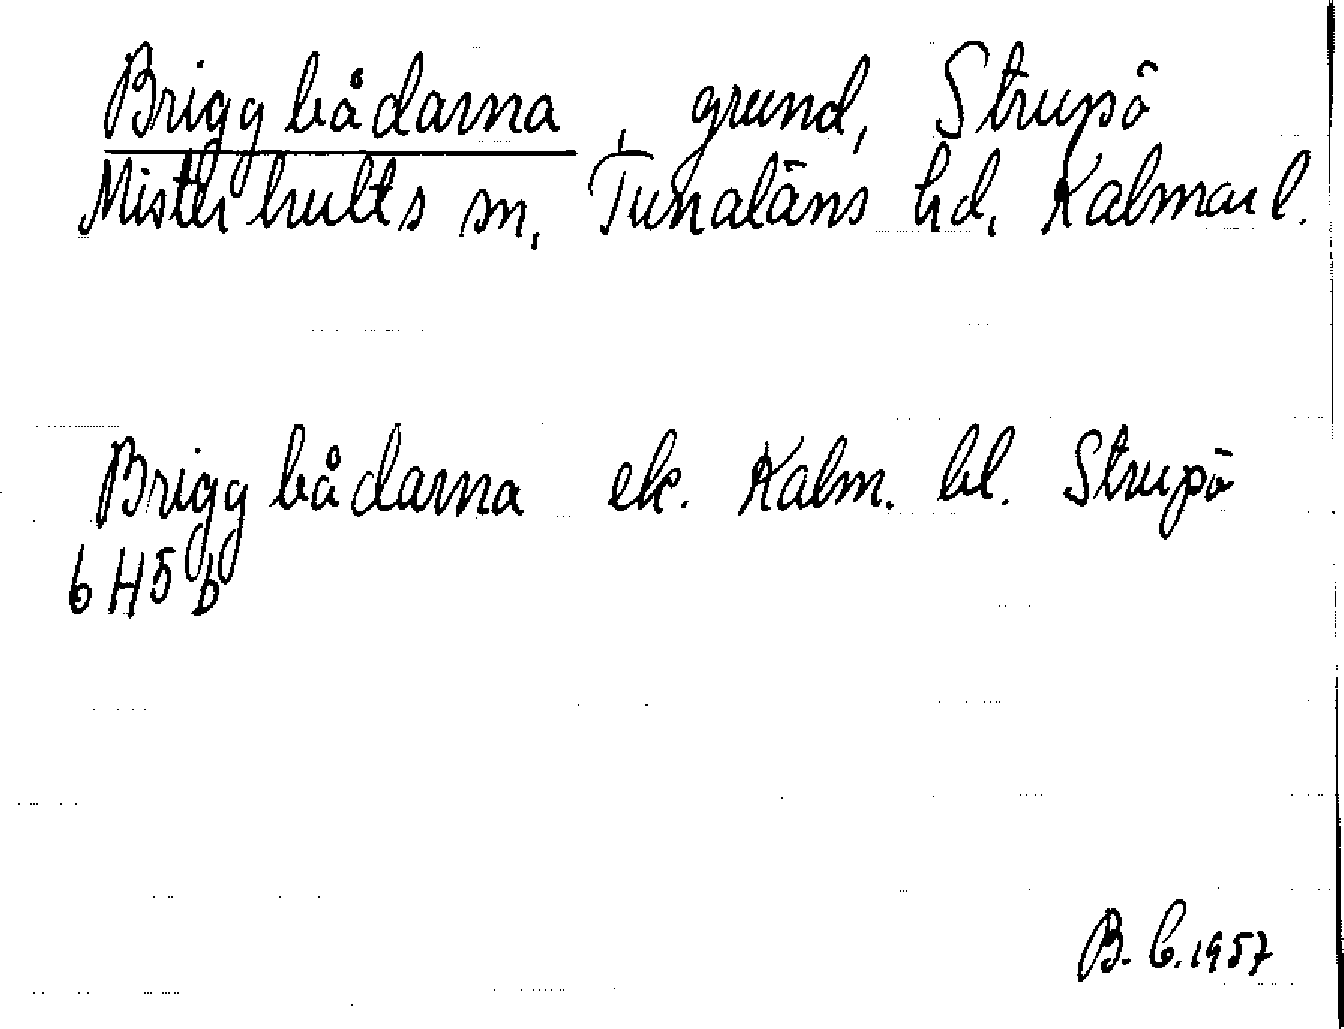 Briggbådarna, grund, Strupö
Misterhults sn, Tunaläns hd, Kalmar l.
Briggbådarna ek. Kalm. bl. Strupö
6 H5 b
B. C. 1957